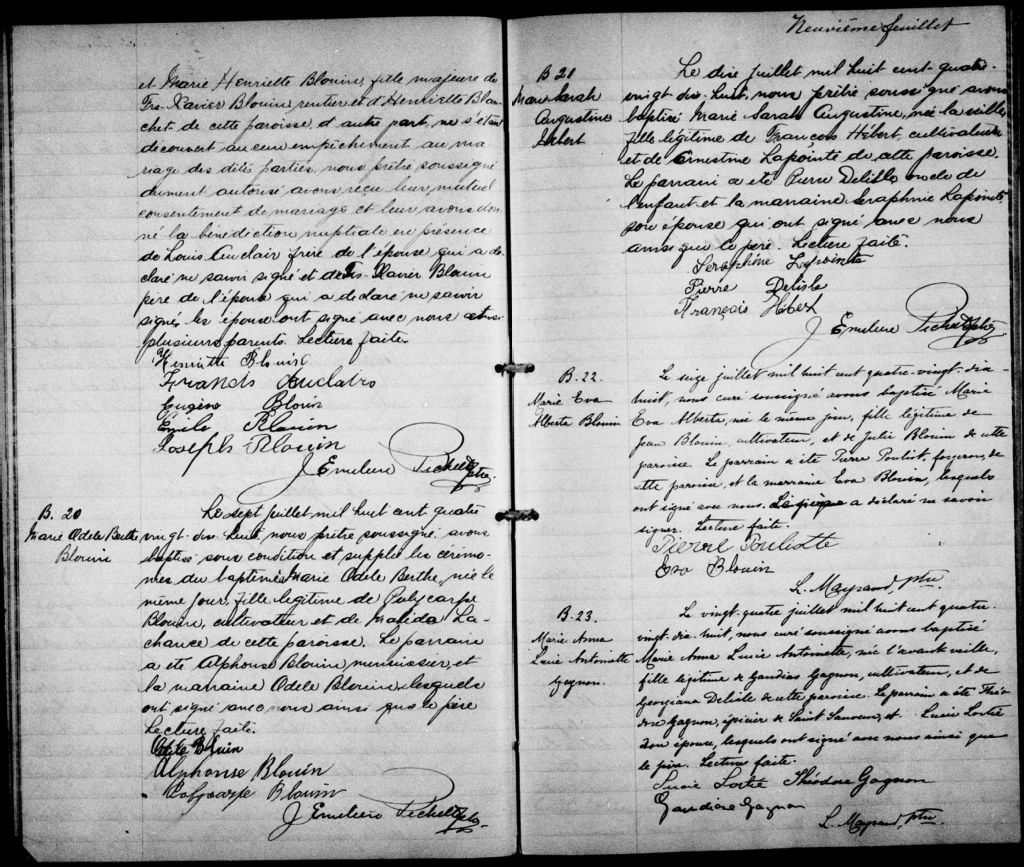 et Marie Henriette Blouin, fille majeure de
Frs-Xavier Blouin, rentier et d'Henriette Blan-
chet de cette paroisse, d'autre part, ne s'étant
découvert aucun empêchement au ma
riage des dites parties, nous prêtre soussigné
dument autorisé avons reçu leur mutuel
consentement de mariage et leur avons don
né la bénédiction nuptiale en présence
de Louis Auclair frère de l'épouse qui a dé
claré ne savoir signé et de Frs-Xavier Blouin
père de l'épouse qui a déclaré ne savoir
signé, les épouse ont signé avec nous
plusieurs parents. Lecture faite.
Henriette Blouin
Francis Auclair
Eugène Blouin
Emile Blouin
Joseph Blouin
J Emilien Pichette ptre.
B. 20
Marie Adele Berthe
Blouin
Le sept juillet mil huit cent quatre
vingt-dix-huit, nous prêtre soussigné, avons
baptisé sous condition et supplée les cérémo-
nies du baptême Marie Adele Berthe, née le
même jour, fille légitime de Polycarpe
Blouin, cultivateur et de Matilda La-
chance de cette paroisse. Le parrain
a été Alphonse Blouin, menuisier, et
la marraine Odele Blouin, lesquels
ont signé avec nous ainsi que le père
Lecture faite.
Odele Blouin
Alphonse Blouin
Polycarpe Blouin
J Emilien Pichette ptre.
Neuvième feuillet
B 21
Marie Sarah
Augustine
Hebert
Le dix juillet mil huit cent quatre-
vingt-dix-huit, nous prêtre soussigné avons
baptisé Marie Sarah Augustine, née la veille,
fille légitime de François Hébert cultivateur
et de Ernestine Lapointe de cette paroisse.
Le parrain a été Pierre Delisle oncle de
l'enfant et la marraine Séraphine Lapointe
son épouse qui ont signé avec nous
ainsi que le père. Lecture faite.
Seraphine Lapointe
Pierre Delisle
François Hébert
J Emilien Pichette ptre
B. 22.
Marie Eva
Alberta Blouin
Le seize juillet mil huit cent quatre-vingt-dix-
huit, nous curé soussigné avons baptisé Marie
Eva Alberta, née le même jour, fille légitime de
Jean Blouin, cultivateur, et de Julie Blouin de cette
paroisse. Le parrain a été Pierre Pouliot, forgeron, de
cette paroisse, et la marraine Eva Blouin, lesquels
ont signé avec nous. Le père a déclaré ne savoir
signer. Lecture faite.
Pierre Pouliotte
Eva Blouin
L. Mayrand, ptre
B. 23.
Marie Anna
Lucie Antoinette
Gagnon.
Le vingt-quatre juillet mil huit cent quatre-
vingt-dix-huit, nous curé soussigné avons baptisé
Marie Anna Lucie Antoinette, née l'avant veille,
fille légitime de Gaudias Gagnon, cultivateur, et de
Georgiana Delisle de cette paroisse. Le parrain a été Théo
dore Gagnon, épicier de Saint Sauveur, et Lucie Lortie
son épouse, lesquels ont signé avec nous ainsi que
le père. Lecture faite.
Lucie Lortie Théodore Gagnon
Gaudiose Gagnon
L. Mayrand, ptre